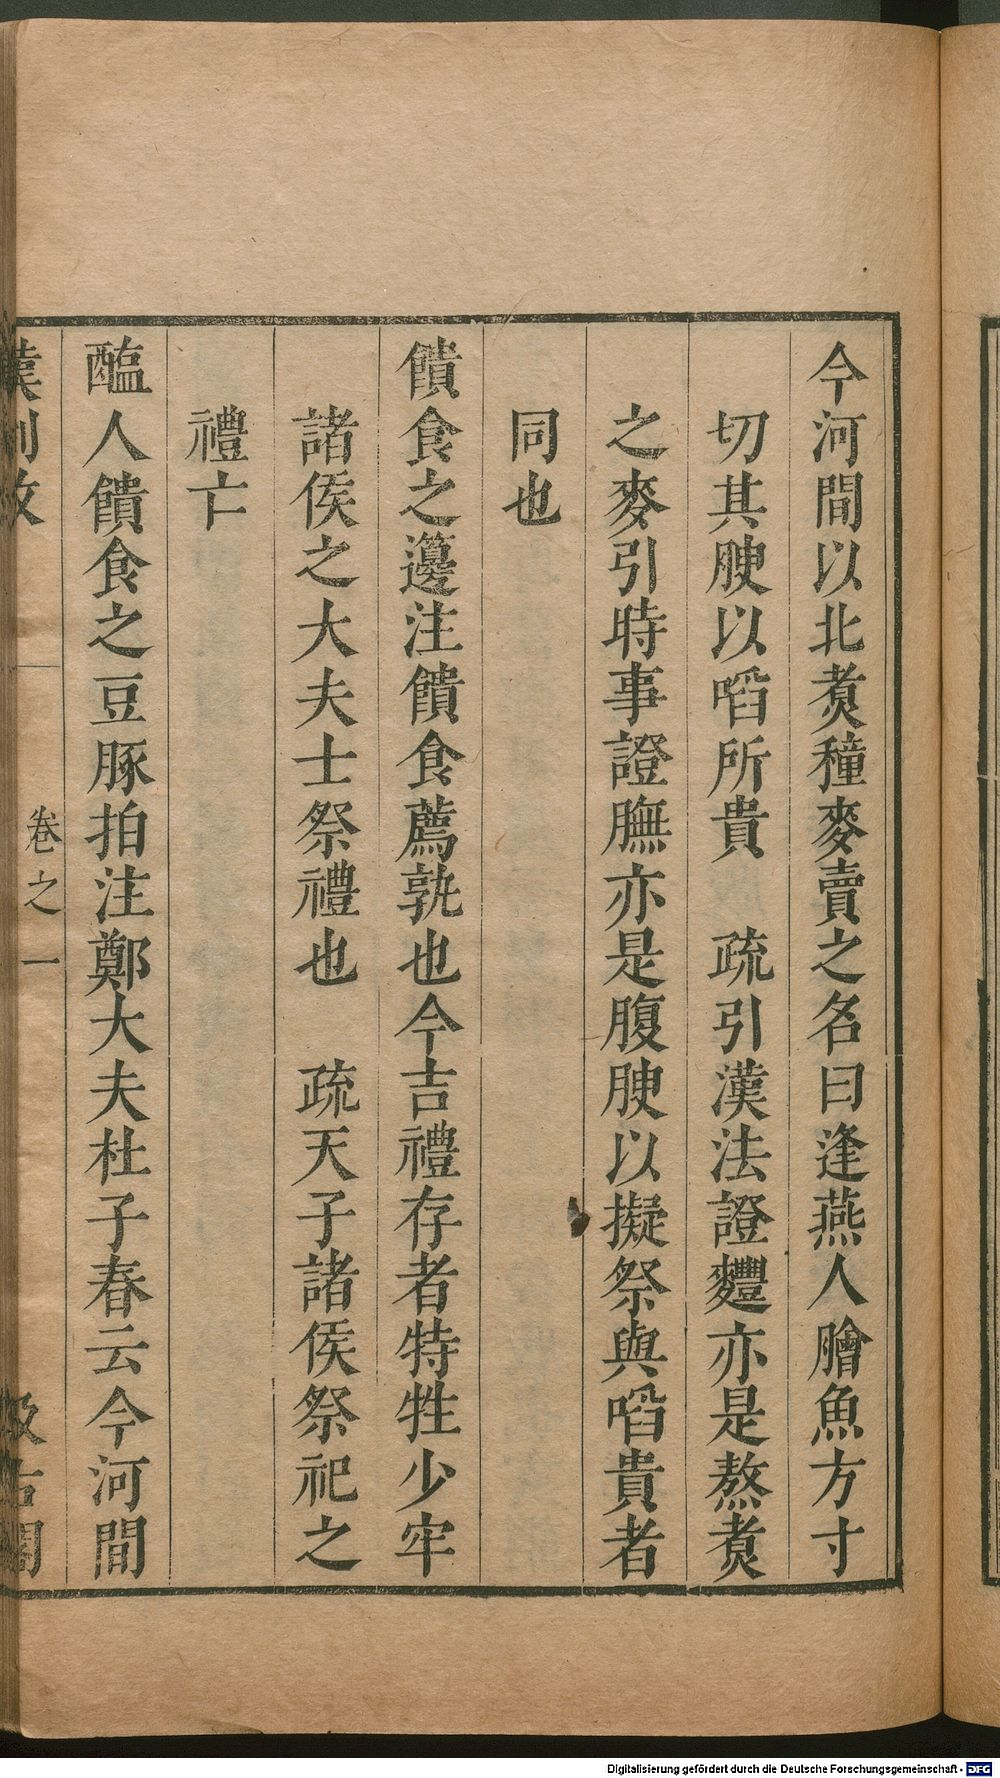 今河間以北煑穜麥賣之名曰逢燕人膾魚方寸
切其腴以啗所貴　疏引漢法證麷亦是熬煑
之麥引時事證膴亦是腹腴以擬祭與啗貴者
同也
饋食之籩注饋食薦孰也今吉禮存者特牲少牢
諸侯之大夫士祭禮也　疏天子諸侯祭祀之
禮亡
醢人饋食之豆豚拍注鄭大夫杜子春云今河間
漢制攷　卷之一　汲古閣
Digitalisierung gefördert durch die Deutsche Forschungsgemeinschaft - DFG